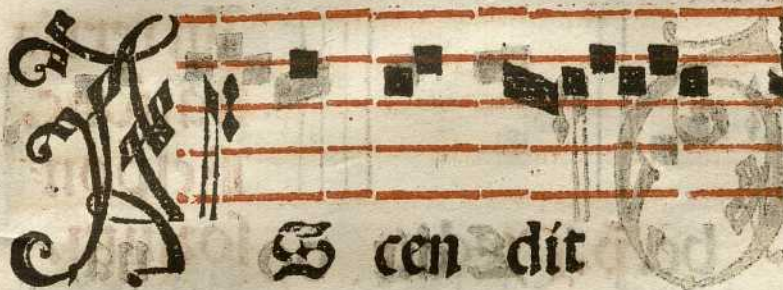 A S cen dit